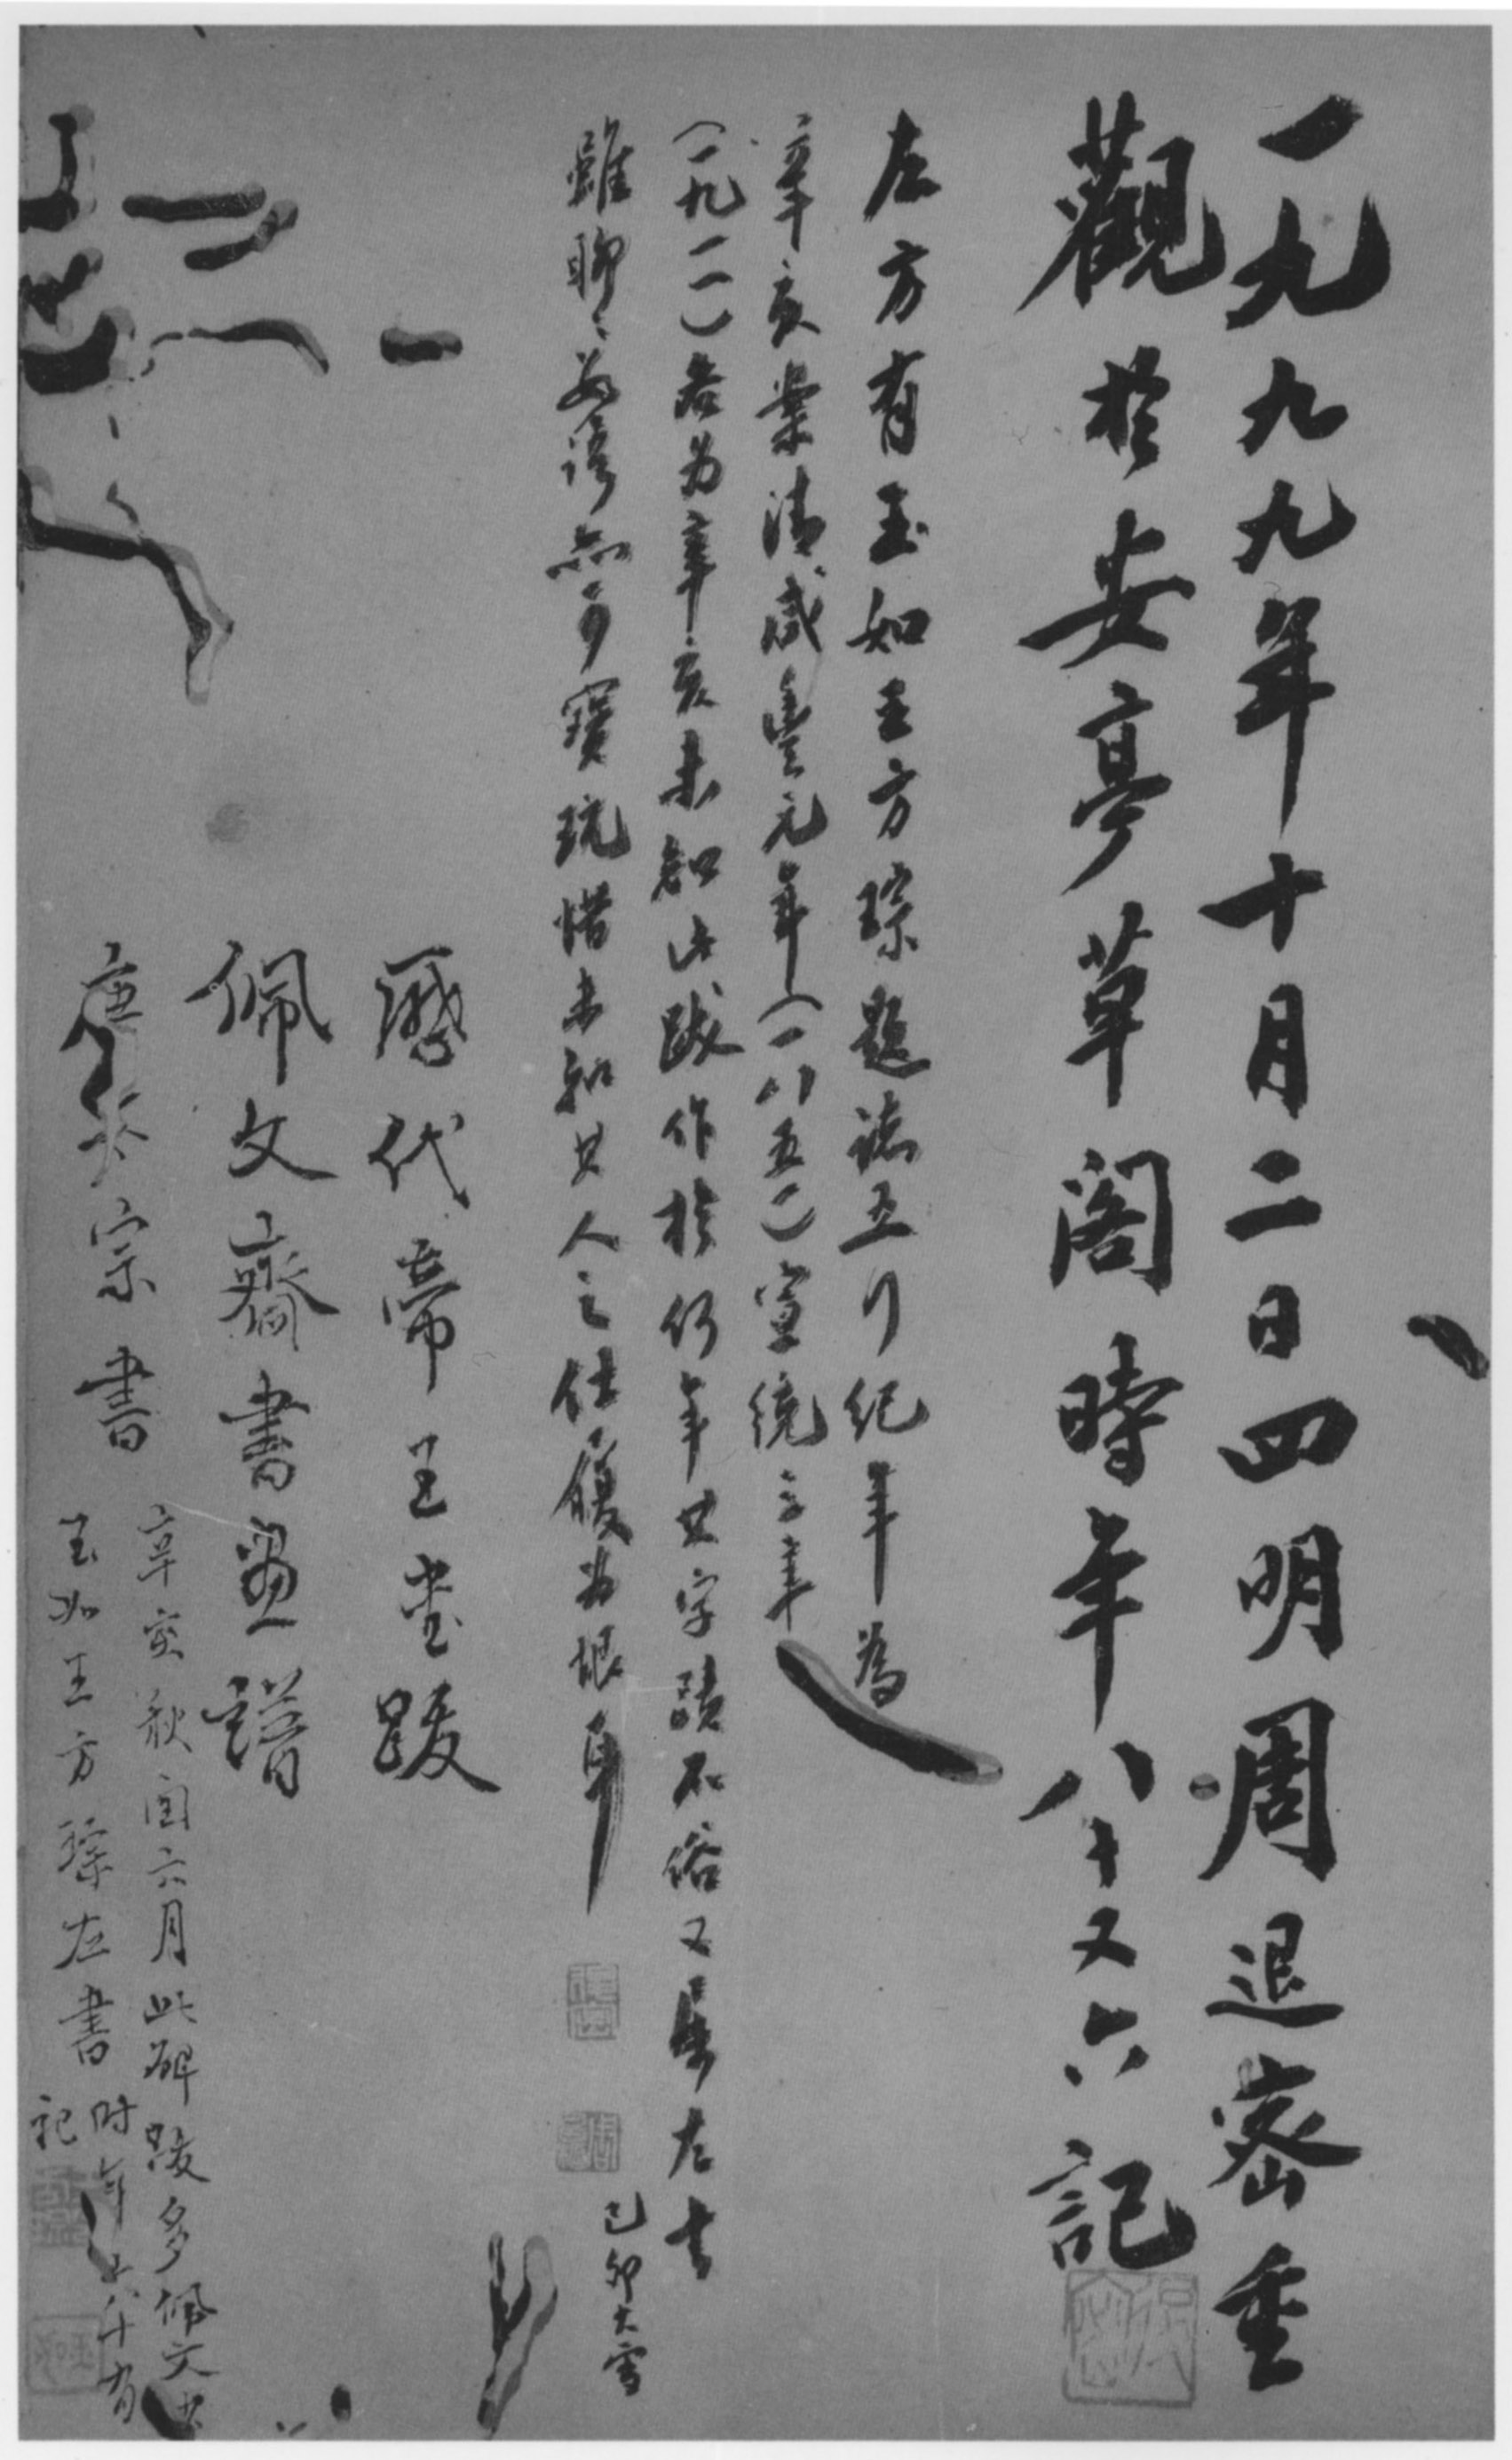 一九九九年十月二日四明周退密重
觀於安亭草閣時年八十又六記
左方有玉如王方琮題誌五行紀年為
辛亥業清咸豐元年（一八五一）宣統三年
（一九一一）咨为辛亥未知此跋作於何年其字蹟不俗又屬左書
雖聊聊數語亦可寶玩惜未知其人之仕履为恨耳
己卯大雪
歷代帝王書跋
佩文齋書畫譜
唐太宗書
辛亥秋閏六月此碑跋多佩文
玉如王方琮左書
時年六十有
記